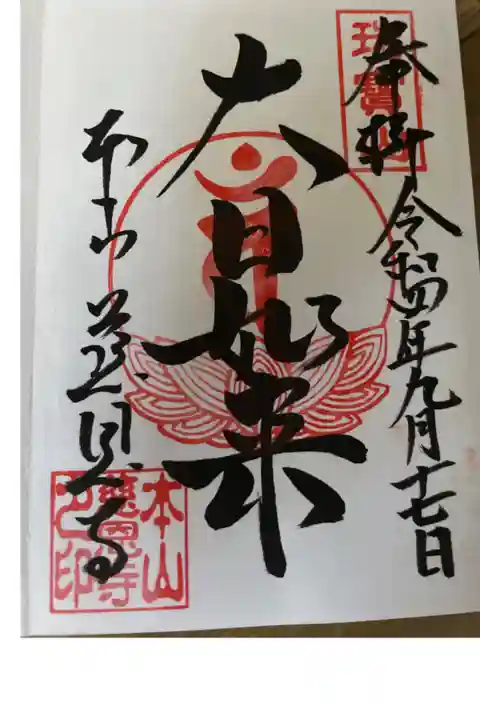 瑞寶山
奉拝 令和四年九月十七日
大日如来
本山 慈恩寺
本山
慈恩寺
之印